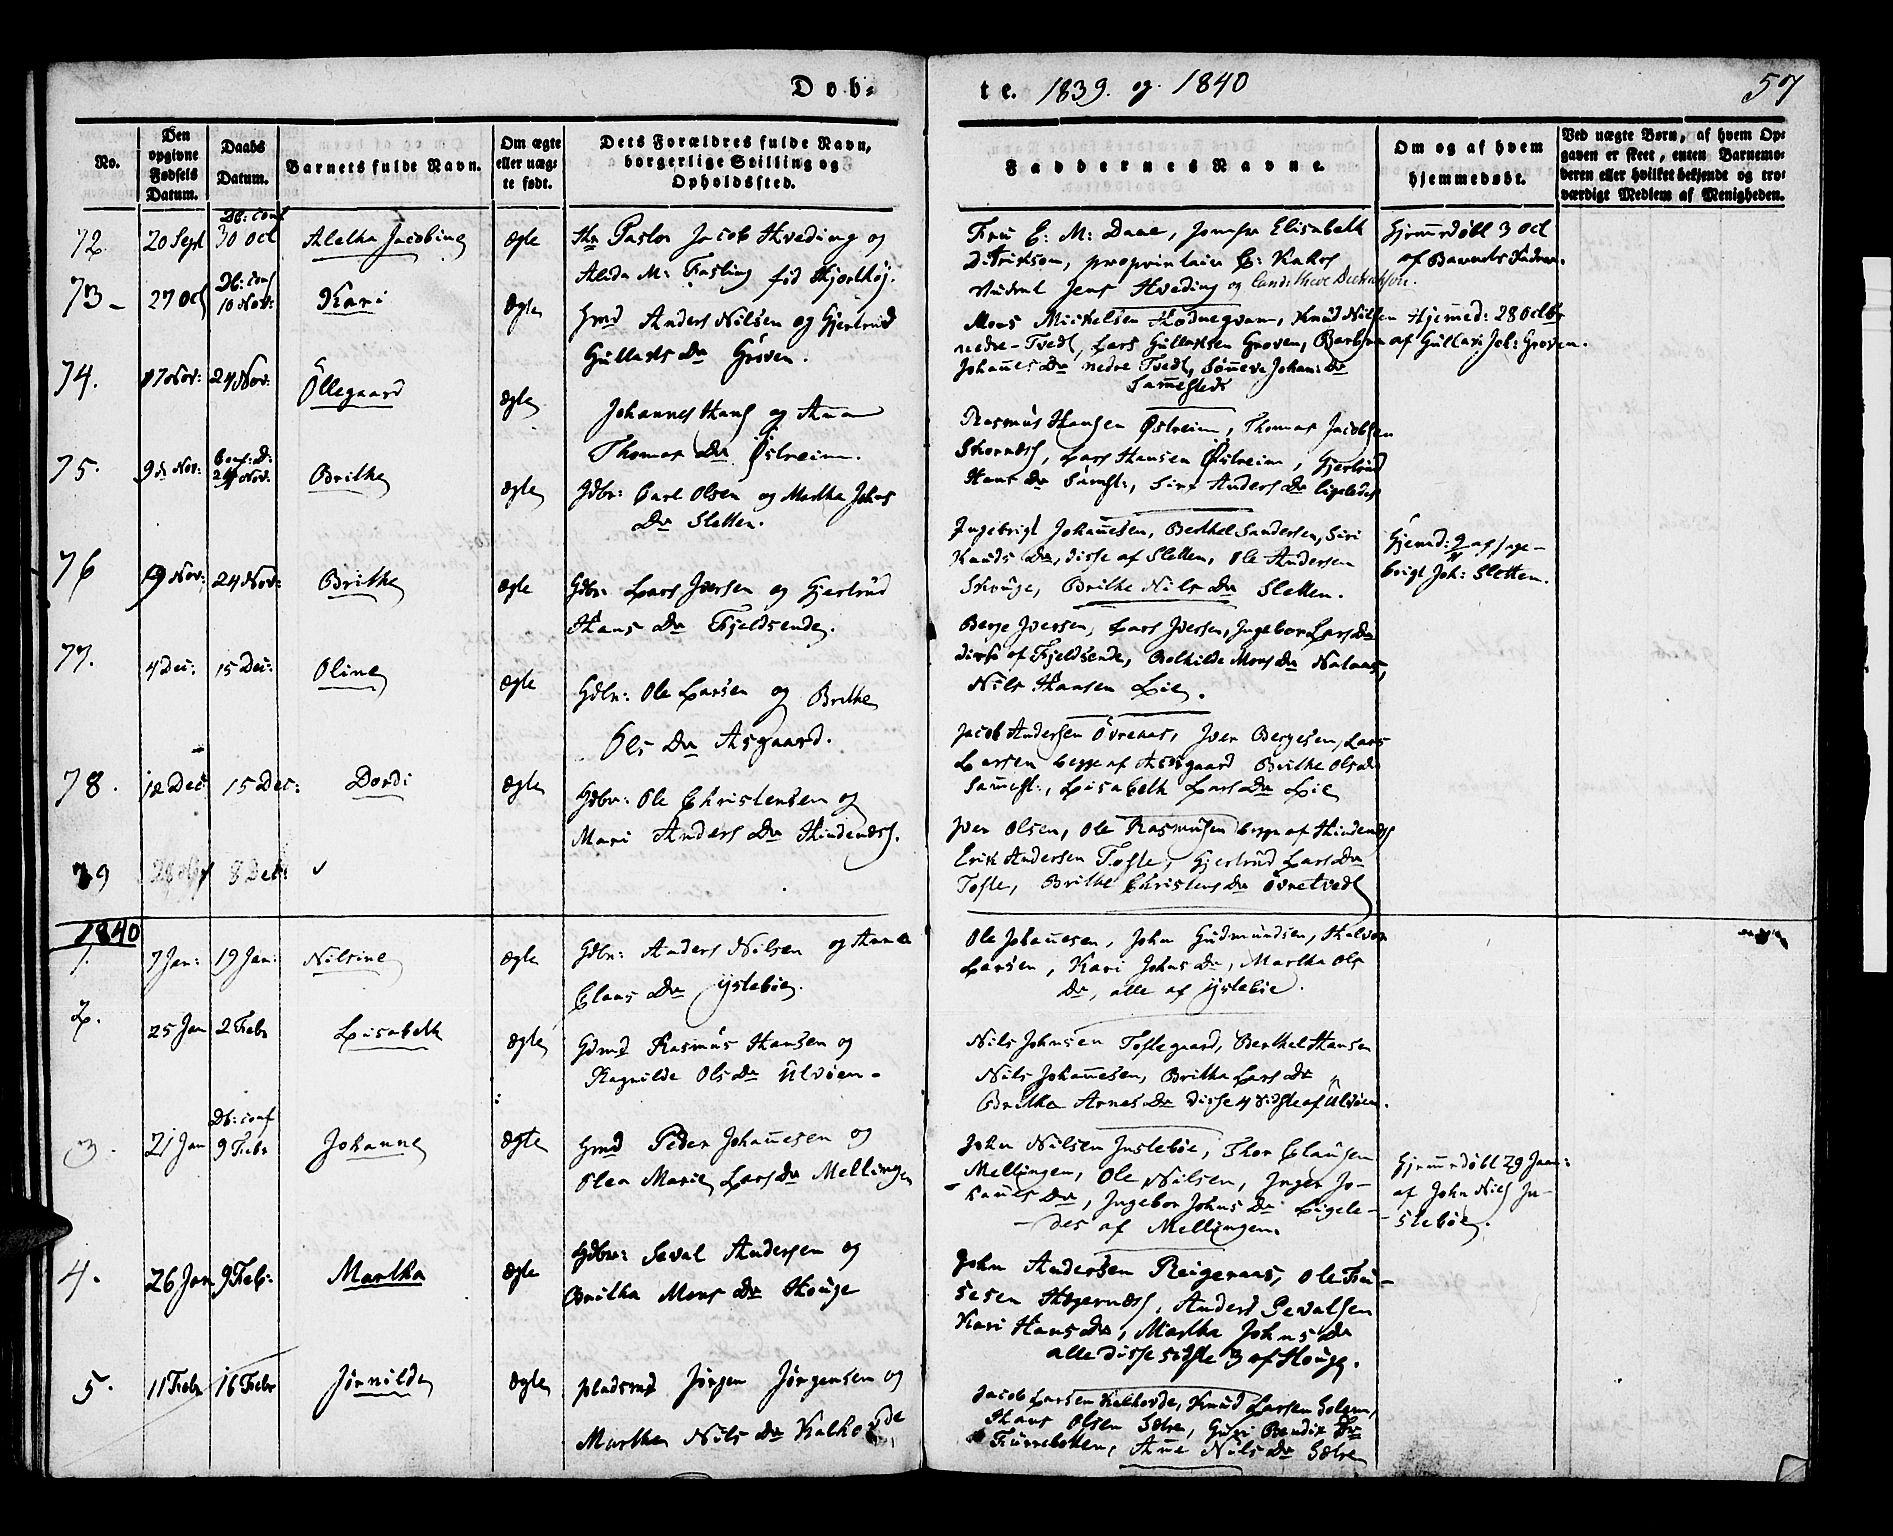 Døb-
te. 1839. og. 1840
57
No.
Den opgivne Fødsels Datum.
Daabs Datum.
Barnets fulde Navn.
Om ægte eller uægte født.
Dets Forældres fulde Navn, borgerlige Stilling og Opholdssted.
Faddernes Navne.
Om og af hvem hjemmedøbt.
Ved uægte Børn, af hvem Opgaven er skeet, enten Barnemoderen eller hvilket bekjendt og troværdigt Medlem af Menigheden.
72. 20 Sept Db: conf 30 Oct Aletha Jacobine ægte
Hr Pastor Jacob Hveding og
Alida M: Fasting fød Hjorthøj.
Frue E: M: Daae, Jomfru Elisabeth
Ditrikson, proprietair
Student Jens Hveding og
Hjemmedøbt 3 Oct
af Barnets Fader.
73 - 27 Oct Db: conf 10 Nov: Kari ægte
Gmd Anders Nilsen og Gjertrud
Gullaks Dr Groven.
Mons Mickelsen Hodnegvam, Knud Nilsen
nedre-Tvedt, Lars Gullaksen Groven, Barbra
Johannes Dr nedre Tvedt, Synneve Johan: Dr
Sammesteds
Hjemmed: 28 Octbr
af Gullak Joh: Groven.
74. 17 Nov: 24 Nov: Øllegaard ægte
Johannes Hans og Anna
Thomas Dr Østreim.
Rasmus Hansen Østreim, Thomas Jacobsen
Lars Hansen Østreim, Gjertrud
Hans Dr Samst:, Siri Anders Dr ligeledes
75. 9d Nov: Conf: D: 24 Nov. Brithe ægte
Gdbr: Carl Olsen og Martha Johns
Dr Sletten.
Ingebrigt Johannesen, Berthel Sandersen, Siri
Knuds Dr, disse af Sletten, Ole Andersen
Skouge, Brithe Nils Dr Sletten.
Hjemd: 9/11 af Inge-
brigt Joh: Sletten.
76 9 Nov: 24 Nov: Brithe ægte
Gdbr: Lars Iversen og Gjertrud
Hans Dr Fjeldsende.
Berge Iversen, Lars Iversen, Ingebor Lars Dr
disse af Fjeldsende, Bothilde Mons Dr Nataas,
Nils Hansen Lie.
77. 4 Dec: 15 Dec: Oline ægte
Gdbr: Ole Larsen og Brithe
Ols Dr Asgaard.
Jacob Andersen Øvreaas, Iver Bergesen, Lars
Larsen begge af Asgaard Brithe Ols Dr
Samest:, Lisabeth Lars Dr Lie
78. 12 Dec 15 Dec: Dordi ægte
Gdbr: Ole Christensen og
Mari Anders Dr Hindenæs.
Iver Olsen, Ole Rasmusen begge af Hindenæs
Erik Andersen Tofte, Gjertrud Lars Dr
Tofte, Brithe Christens Dr Øvretvedt
79 8 Dec:
1840
1. 7 Jan: 19 Jan: Nilsine ægte
Gdbr: Anders Nilsen og Anna
Claus Dr Ystebøe.
Ole Johannesen, John Gudmundsen, Halvor
Larsen, Kari Johns Dr, Martha Ols
Dr, alle af Ystebøe.
2. 25 Jan 2 Febr Lisabeth ægte
Gdmd Rasmus Hansen og
Ragnilde Ols Dr Ulvøen -
Nils Johnsen Toftegaard, Berthel Hansen
Nils Johannesen, Britha Lars Dr
Britha Arnes Dr disse 4 sidste af Ulvøen.
3. 21 Jan Db: conf 9 Febr Johanne ægte
Gmd Peder Johannesen og
Olea Marie Lars Dr Mellingen
John Nilsen Juslebøe, Thor Clausen
Mellingen, Ole Nilsen, Inger Jo-
hanes Dr, Ingebor Johns Dr Ligele-
des af Mellingen.
Hjemmedøbt 29 Jan:
af John Niels Ju-
slebøe.
4. 26 Jan 9 Feb: Martha ægte
Gdbr: Seval Andersen og
Britha Mons Dr Houge
John Andersen Reigeraas, Ole
Anders Sevalsen
Kari Hans Dr, Martha Johns Dr
alle disse sidste 3 af Houge.
5. 11 Febr 16 Febr Jørnilde ægte
pladsmd Jørgen Jørgensen og
Martha Nils Dr Kalhovde
Jacob Larsen Kalhovde, Knud Larsen Solem,
Hans Olsen Sætre, Guri Bendix Dr
Furrebotten, Ane Nils Dr Sætre